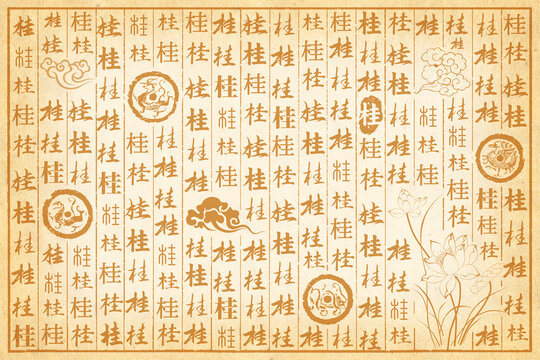 桂桂桂桂桂桂桂桂桂桂桂
桂桂桂桂桂桂桂桂桂桂
桂桂桂桂桂桂桂
桂桂桂桂桂
桂桂桂桂桂桂桂桂桂
桂桂桂桂桂桂桂桂桂桂桂
桂桂桂桂桂桂桂桂桂
桂桂桂桂桂桂桂桂桂桂
桂桂桂桂桂桂桂桂桂桂桂
桂桂桂桂桂桂桂桂桂桂桂
桂桂桂桂桂桂桂桂桂
桂桂桂桂桂桂桂桂桂
桂桂桂桂桂桂桂桂桂桂桂
桂桂桂桂桂桂桂桂桂桂
桂桂桂桂桂桂桂桂桂桂桂
桂桂桂桂桂桂桂桂桂
桂桂桂桂桂桂桂桂桂
桂桂桂桂桂桂桂桂桂桂桂